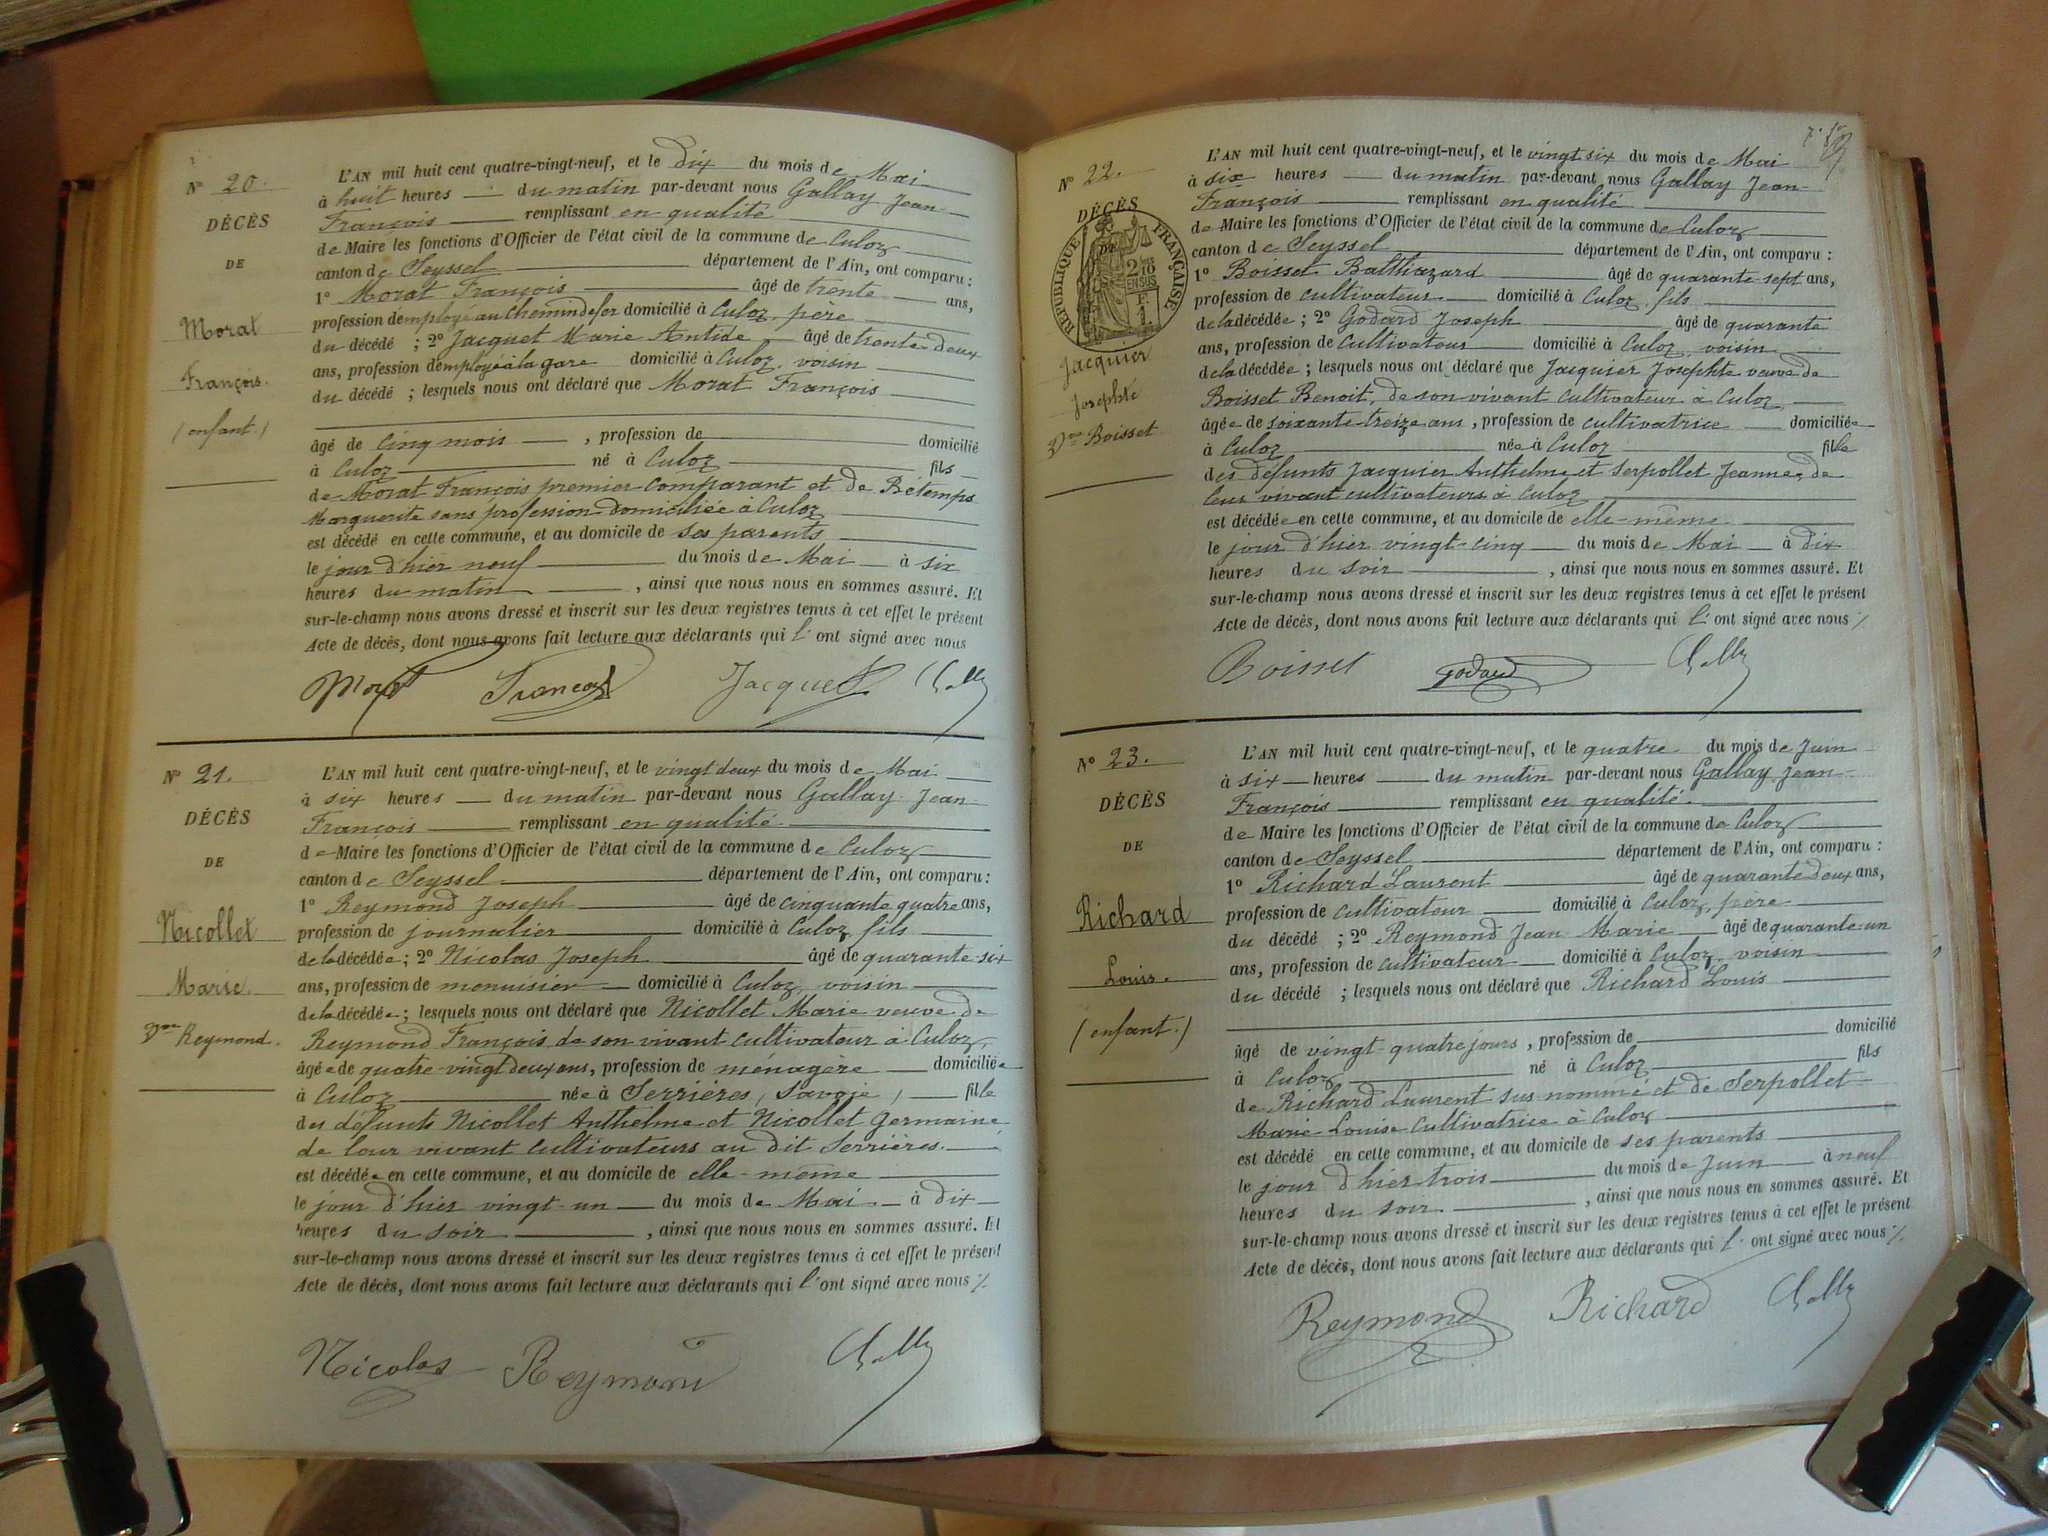 N° 20.
DÉCÈS
DE
Morat
François.
(enfant.)
L'AN mil huit cent quatre-vingt-neuf, et le dix du mois de Mai
à huit heures du matin par-devant nous Gallay Jean-
François remplissant en qualité
de Maire les fonctions d'Officier de l'état civil de la commune de Culoz
canton de Seyssel département de l'Ain, ont comparu :
1° Morat François âgé de trente ans,
profession d'employé au Chemin de fer domicilié à Culoz, père
du décédé ; 2° Jacquet Marie Antide âgé de trente-deux
ans, profession d'employé à la gare domicilié à Culoz, voisin
du décédé ; lesquels nous ont déclaré que Morat François
âgé de cinq mois , profession de domicilié
à Culoz né à Culoz fils
de Morat François premier comparant et de Bétemps
Marguerite sans profession domiciliée à Culoz
est décédé en cette commune, et au domicile de ses parents
le jour d'hier neuf du mois de Mai à six
heures du matin , ainsi que nous nous en sommes assuré. Et
sur-le-champ nous avons dressé et inscrit sur les deux registres tenus à cet effet le présent
Acte de décès, dont nous avons fait lecture aux déclarants qui l' ont signé avec nous
Morat François Jacquet
N° 21.
DÉCÈS
DE
Nicollet
Marie.
Vve Reymond.
L'AN mil huit cent quatre-vingt-neuf, et le vingt deux du mois de Mai
à six heures du matin par-devant nous Gallay Jean-
François remplissant en qualité
de Maire les fonctions d'Officier de l'état civil de la commune de Culoz
canton de Seyssel département de l'Ain, ont comparu :
1° Reymond Joseph âgé de cinquante quatre ans,
profession de journalier domicilié à Culoz fils
de la décédée ; 2° Nicolas Joseph âgé de quarante-six
ans, profession de menuisier domicilié à Culoz, voisin
de la décédée ; lesquels nous ont déclaré que Nicollet Marie veuve de
Reymond François de son vivant cultivateur à Culoz,
âgée de quatre-vingt deux ans, profession de ménagère domiciliée
à Culoz née à Serrières, (Savoie) fille
des défunts Nicollet Anthelme et Nicollet Germaine
de leur vivant cultivateurs au dit Serrières.
est décédée en cette commune, et au domicile de elle-même
le jour d'hier vingt-un du mois de Mai à dix
heures du soir , ainsi que nous nous en sommes assuré. Et
sur-le-champ nous avons dressé et inscrit sur les deux registres tenus à cet effet le présent
Acte de décès, dont nous avons fait lecture aux déclarants qui l' ont signé avec nous ٪
Nicolas Reymond
N° 22.
DÉCÈS
DE
RÉPUBLIQUE FRANÇAISE
2/10
EN SUS
Jacquier
Josephte
Vve Boisset
L'AN mil huit cent quatre-vingt-neuf, et le vingt six du mois de Mai
à six heures du matin par-devant nous Gallay Jean-
François remplissant en qualité
de Maire les fonctions d'Officier de l'état civil de la commune de Culoz
canton de Seyssel département de l'Ain, ont comparu :
1° Boisset Balthazard âgé de quarante-sept ans,
profession de cultivateur domicilié à Culoz, fils
de la décédée ; 2° Godard Joseph âgé de quarante
ans, profession de cultivateur domicilié à Culoz, voisin
de la décédée ; lesquels nous ont déclaré que Jacquier Josephte veuve de
Boisset Benoit, de son vivant cultivateur à Culoz
âgée de soixante-treize ans , profession de cultivatrice domiciliée
à Culoz née à Culoz fille
des défunts Jacquier Anthelme et Serpollet Jeanne, de
leur vivant cultivateurs à Culoz
est décédée en cette commune, et au domicile de elle-même
le jour d'hier vingt-cinq du mois de Mai à dix
heures du soir , ainsi que nous nous en sommes assuré. Et
sur-le-champ nous avons dressé et inscrit sur les deux registres tenus à cet effet le présent
Acte de décès, dont nous avons fait lecture aux déclarants qui l' ont signé avec nous ٪
Boisset Godard
N° 23.
DÉCÈS
DE
Richard
Louis.
(enfant.)
L'AN mil huit cent quatre-vingt-neuf, et le quatre du mois de Juin
à six heures du matin par-devant nous Gallay Jean-
François remplissant en qualité.
de Maire les fonctions d'Officier de l'état civil de la commune de Culoz
canton de Seyssel département de l'Ain, ont comparu :
1° Richard Laurent âgé de quarante deux ans,
profession de cultivateur domicilié à Culoz, père
du décédé ; 2° Reymond Jean Marie âgé de quarante-un
ans, profession de cultivateur domicilié à Culoz, voisin
du décédé ; lesquels nous ont déclaré que Richard Louis
âgé de vingt-quatre jours , profession de domicilié
à Culoz né à Culoz fils
de Richard Laurent sus nommé et de Serpollet
Marie Louise cultivatrice à Culoz
est décédé en cette commune, et au domicile de ses parents
le jour d'hier trois du mois de Juin à neuf
heures du soir , ainsi que nous nous en sommes assuré. Et
sur-le-champ nous avons dressé et inscrit sur les deux registres tenus à cet effet le présent
Acte de décès, dont nous avons fait lecture aux déclarants qui l' ont signé avec nous ٪
Reymond Richard